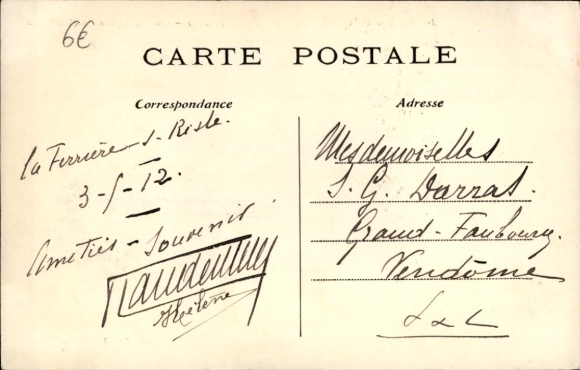 6€
CARTE POSTALE
Correspondance
La Ferrière-s-Risle.
3-5-12.
Amitiés - Souvenir.
Hélène
Adresse
Mesdemoiselles
S. G. Darras.
Grand-Faubourg.
Vendôme
L & C